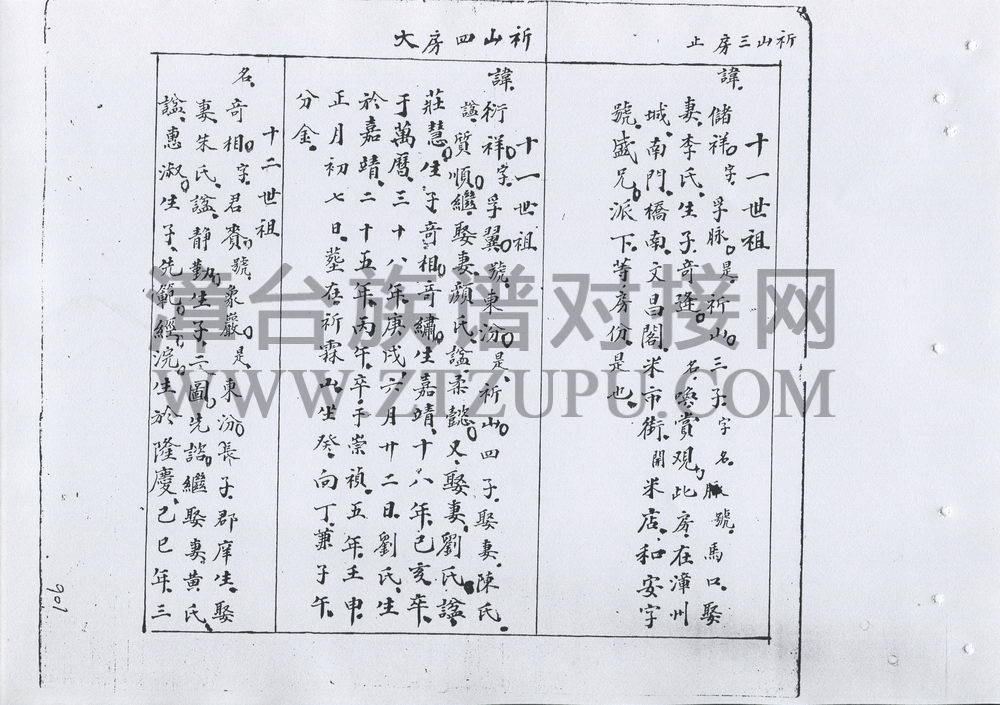 祈山三房止
十一世祖
諱。儲祥。字。孚脉。是。祈山。三子。字名。脈號。馬口。娶
妻。李氏。生子。奇逢。名。喚賞观。此房。在漳州
城。南門。橋南。文昌閣。米市街。開米店。和安字
號。盛兄。派下。等房份。是也。
祈山四房大
十一世祖
諱。衍祥。字。孚翼。號。東汾。是。祈山。四子。娶妻。陳氏。
諡。質順。繼。娶妻。顏氏。諡。柔懿。又。娶妻。劉氏。諡。
莊慧。生子。奇相。奇繡。生。嘉靖。十八年。己亥。卒。
于萬曆。三十八年。庚戌。六月廿二日。劉氏。生
於嘉靖。二十五年。丙午。卒。于崇禎。五年。壬申。
正月初七日。塟在祈霖山。坐癸。向丁。兼子午。
分金。
十二世祖
名。奇相。字。君賚。號。象巖。是。東汾。長子。郡庠生。娶
妻。朱氏。諡。靜勤。生子。二圖。先諮。繼娶妻。黃氏。
諡。惠淑。生子。先範。經。浣。生於隆慶。己巳年。三
106
漳台族谱对接网
WWW.ZTZUPU.COM